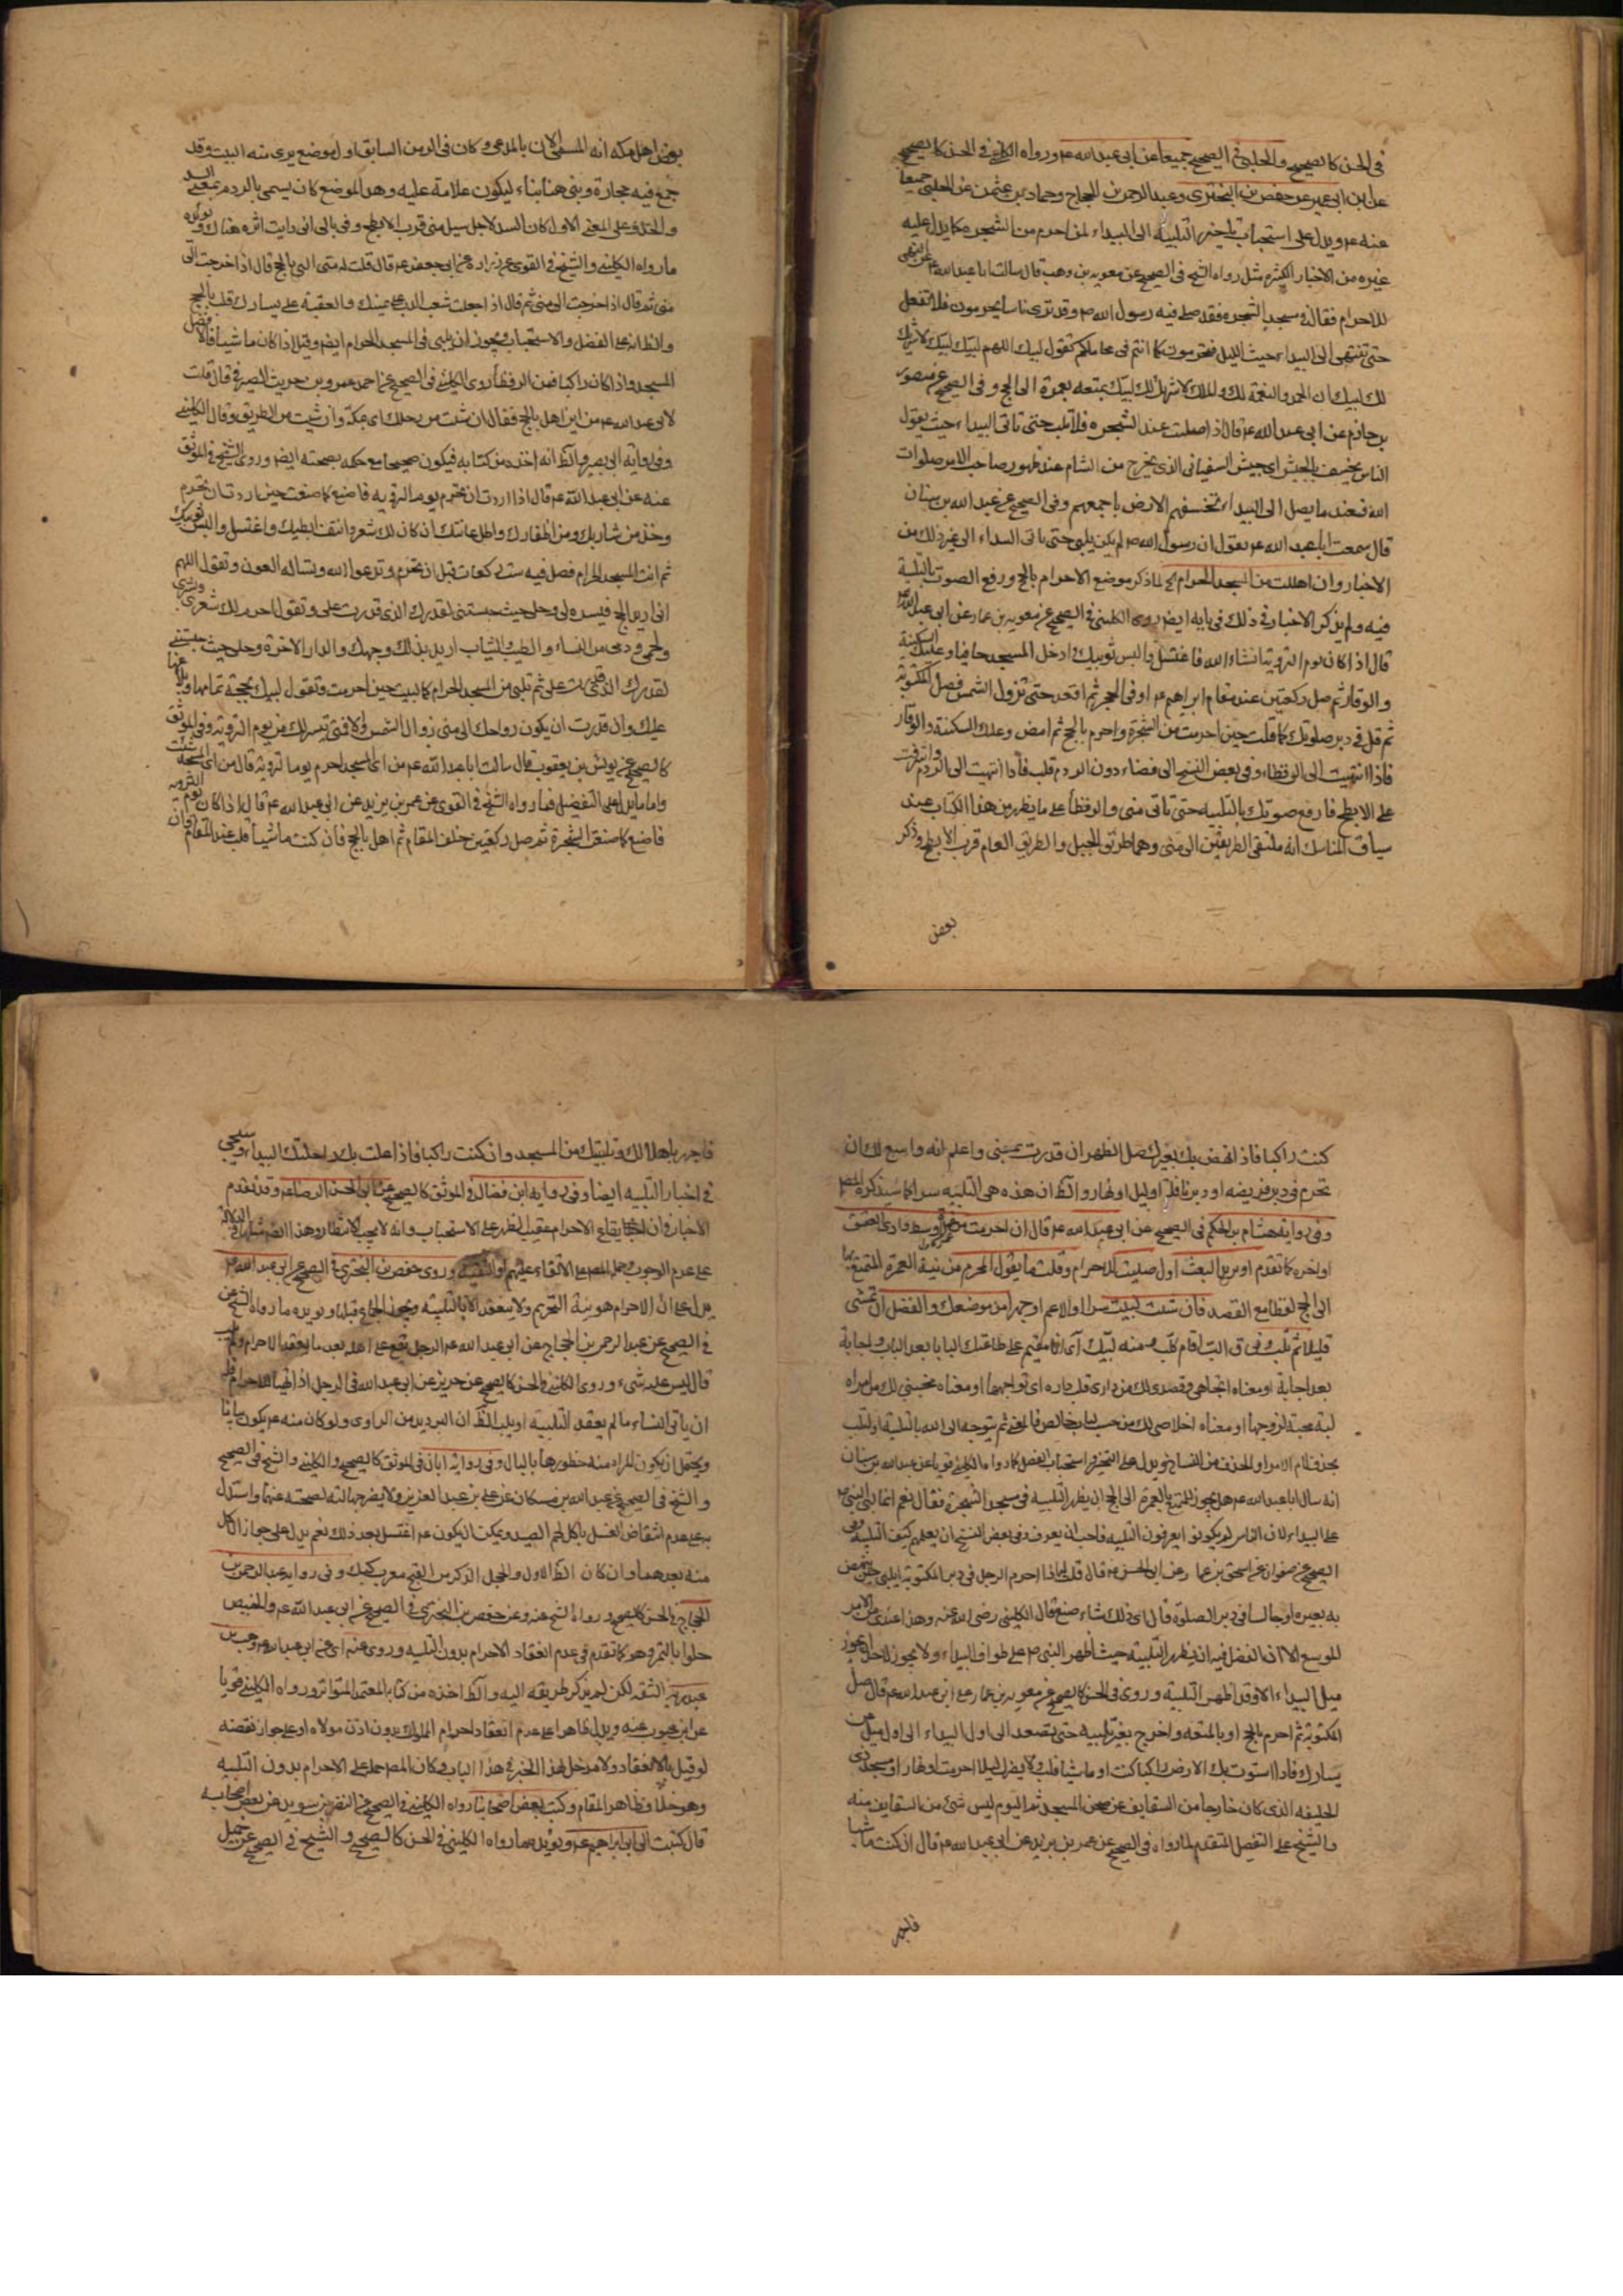 في الحسن كالصحيح والحلبي في الصحيح جميعا عن ابي عبد الله ع م ورواه الكليني في الحسن كالصحيح
عن ابن ابي عمير عن حفص بن البختري وعبد الرحمن بن الحجاج وحماد بن عثمن عن الحلبي جميعا
عنه ع م ويدل على استحباب تاخير التلبية الى البيداء لمن احرم من الشجره كما يدل عليه
غيره من الاخبار الكثيره مثل رواه الشيخ في الصحيح عن معويه بن وهب قال سالت ابا عبد الله عن التهيئ
للاحرام فقال في مسجد الشجره فقد صلى فيه رسول الله ص وقد ترى ناسا يحرمون فلا تفعل
حتى تنتهى الى البيداء حيث الميل فتحرمون كما انتم في محاملكم تقول لبيك اللهم لبيك لبيك لا شريك
لك لبيك ان الحمد والنعمة لك والملك لا شريك لك لبيك بمتعه بعمرة الى الحج وفي الصحيح عن منصور
بن حازم عن ابي عبد الله ع م قال اذا صليت عند الشجره فلا تلب حتى تاتى البيداء حيث يقول
الناس يخسف بالجيش اى جيش السفياني الذى يخرج من الشام عند ظهور صاحب الامر صلوات
الله فعند ما يصل الى البيداء تخسفهم الارض باجمعهم وفى الصحيح عن عبد الله بن سنان
قال سمعت ابا عبد الله ع م يقول ان رسول الله ص لم يكن يلبى حتى ياتى البيداء الى غير ذلك من
الاخبار وان اهللت من المسجد الحرام الخ لما ذكر موضع الاحرام بالحج ورفع الصوت بالتلبية
فيه ولم يذكر الاخبار في ذلك في بابه ايضا روى الكليني في الصحيح عن معويه بن عمار عن ابي عبد الله ع م
قال اذا كان يوم التروية انشاء الله فاغتسل والبس ثوبيك وادخل المسجد حافيا وعليك السكينة
والوقار ثم صل ركعتين عند مقام ابراهيم ع م او في الحجر ثم اقعد حتى تزول الشمس فصل المكتوبة
ثم قل في دبر صلوتك كما قلت حين احرمت من الشجرة واحرم بالحج ثم امض وعليك السكينة والوقار
فاذا انتهيت الى الرقطاء وفي بعض النسخ الى فضاء دون الردم فلب فاذا انتهيت الى الردم واشرفت
على الابطح فارفع صوتك بالتلبيه حتى تاتى منى والرقطا على ما يظهر من هذا الكتاب عند
سياق المناسك انه ملتقى الطريقين الى منى وهما طريق الجبل والطريق العام قرب الابطح وذكر
بعض
بعض اهل مكه انه المسمى الان بالمدعى وكان في الزمن السابق اول موضع يرى منه البيت وقد
جمع فيه حجارة وبنى هنا بناء ليكون علامة عليه وهذا الموضع كان يسمى بالردم بمعنى السد
والخندق وعلى المعنى الاول كان السد لاجل سيل منى قرب الابطح وفى بالى انى رايت اثره هناك ويؤيده
ما رواه الكليني والشيخ في القوى عن زرارة عن ابي جعفر ع م قال قلت له متى البى بالحج قال اذا خرجت الى
منى ثم قال اذا خرجت الى منى ثم قال اذا جعلت شعب الدب على يمينك والعقبة على يسارك فلب بالحج
والظاهر انه على الفضل والاستحباب ويجوز ان يلبى في المسجد الحرام ايضا وقيل اذا كان ماشيا فالافضل
المسجد واذا كان راكبا فمن الرقطاء روى الكليني في الصحيح عن احمد عمرو بن حريث الصيرفى قال قلت
لابي عبد الله ع م من اين اهل بالحج فقال ان شئت من رحلك اى مكة وان شئت من الطريق وقال الكليني
وفي رواية ابي بصير والظ انه اخذه من كتابه فيكون صحيحا مع حكمه بصحته ايضا وروى الشيخ في الموثق
عنه عن ابي عبد الله ع م قال اذا اردت ان تحرم يوم التروية فاصنع كما صنعت حين اردت ان تحرم
وخذ من شاربك ومن اظفارك واطل عانتك ان كان لك شعر وانتف ابطيك واغتسل والبس ثوبيك
ثم ائت المسجد الحرام فصل فيه ست ركعات قبل ان تحرم وتدعوا الله وتساله العون وتقول اللهم
انى اريد الحج فيسره لى وحلى حيث حبستنى لقدرك الذى قدرت على وتقول احرم لك شعرى وبشرى
ولحمى ودمى من النساء والطيب والثياب اريد بذلك وجهك والدار الاخرة وحلى حيث حبستنى
لقدرك الذى قدرت على ثم تلبى من المسجد الحرام كما لبيت حين احرمت وتقول لبيك بحجة تمامها وبلاغها
عليك وان قدرت ان يكون رواحك الى منى زوال الشمس والا فمتى تيسر لك من يوم التروية وفى الموثق
كالصحيح عن يونس بن يعقوب قال سالت ابا عبد الله ع م من اى المسجد احرم يوم التروية قال من اى المسجد شئت
واما ما يدل على التفضيل فما رواه الشيخ في القوى عن عمر بن يزيد عن ابي عبد الله ع م قال اذا كان يوم التروية
فاصنع كما صنعت بالشجرة ثم صل ركعتين خلف المقام ثم اهل بالحج فان كنت ماشيا فلب عند المقام وان
كنت راكبا فاذا نهض بك بعيرك صل الظهر ان قدرت بمنى واعلم انه واسع لك ان
تحرم في دبر فريضه او دبر نافلة او ليل او نهار والظ ان هذه هى التلبية سرا كما سيذكره المص
وفي رواية هشام بن الحكم في الصحيح عن ابي عبد الله ع م قال ان احرمت من غمرة وسط وادى العقيق
او اخره كما تقدم او بريد البعث اول صليت للاحرام وقلت ما يقول المحرم من نية العمرة المتمتع بها
الى الحج لفظا مع القصد فان شئت لبيت سرا او الاعم او جهرا من موضعك والفضل ان تمشى
قليلا ثم تلب وفى ق الب اقام كلب ومنه لبيك اى انا مقيم على طاعتك البابا بعد الباب واجابة
بعد اجابة او معناه اتجاهى وقصدى لك من دارى تلب داره اى تواجهها او معناه محبتي لك من امراة
لبة محبة لزوجها او معناه اخلاصى لك من حسب لباب خالص فالمعنى ثم يتوجه الى الله بالتلبية او لتلب
بحذف لام الامر او الحذف من النساخ ويدل على التخيير واستحباب الفصل كما رواه الكليني قويا عن عبد الله بن سنان
انه سال ابا عبد الله ع م هل يجوز للمتمتع بالعمرة الى الحج ان يظهر التلبيه في مسجد الشجرة فقال نعم انما لبى النبي ص
على البيداء لان الناس لم يكونوا يعرفون التلبيه فاحب ان يعرف وفي بعض النسخ ان يعلمهم كيف التلبيه وفى
الصحيح عن صفوان عن اسحق بن عمار عن ابي الحسن ع م قال قلت له اذا احرم الرجل في دبر المكتوبة ايلبى حين ينهض
به بعيره او جالسا في دبر الصلوة قال اى ذلك شاء صنع قال الكليني رضى الله عنه وهذا عندى من الامر
الموسع الا ان الفضل فيه ان يظهر التلبية حيث اظهر النبي ص على طرف البيداء ولا يجوز لاحد ان يجوز
ميل البيداء الا وقد اظهر التلبية وروى في الحسن كالصحيح عن معويه بن عمار عن ابي عبد الله ع م قال صل
المكتوبة ثم احرم بالحج او بالمتعه واخرج بغير تلبية حتى تصعد الى اول البيداء الى اول ميل عن
يسارك فاذا استوت بك الارض راكبا كنت او ماشيا فلب ولا يضرك ليلا احرمت او نهارا ومسجد ذى
الحليفه الذى كان خارجا من السقايف عن صحن المسجد ثم اليوم ليس شئ من السقايف منه
والشيخ على التفصيل المتقدم لما رواه في الصحيح عن عمر بن يزيد عن ابي عبد الله ع م قال ان كنت ماشيا
فاجهر
فاجهر باهلالك وتلبيتك من المسجد وان كنت راكبا فاذا علت بك راحلتك البيداء وسيجئ
في اخبار التلبيه ايضا وفي رواية ابن فضال في الموثق كالصحيح عن ابي الحسن الرضا ع م وقد تقدم
الاخبار وان ايقاع الاحرام عقيب الظهر على الاستحباب وانه لا يجب الانتظار وهذا الخبر مشارك في الدلالة
على عدم الوجوب وحمل المص على الاتقاء عليهم او التقيه وروى حفص بن البختري في الصحيح عن ابي عبد الله ع م
يدل على ان الاحرام هو نية التحريم ولا ينعقد الا بالتلبيه ويجوز الجماع قبلها ويؤيده ما رواه الشيخ عن
في الصحيح عن عبد الرحمن بن الحجاج عن ابي عبد الله ع م في الرجل يقع على اهله بعد ما يعقد الاحرام ولم يلب
قال ليس عليه شئ وروى الكليني في الحسن كالصحيح عن حريز عن ابي عبد الله في الرجل اذا تهيأ للاحرام فله
ان ياتى النساء ما لم يعقد التلبيه او يلب الظ ان الترديد من الراوى ولو كان منه ع م يكون بيانا
ويحتمل ان يكون المراد منه خطورها بالبال وفي رواية ابان في الموثق كالصحيح والكليني والشيخ في الصحيح
والشيخ في الصحيح عن عبد الله بن مسكان عن على بن عبد العزيز ولا يضر جهالته لصحته عنهما واستدل
به على عدم انتقاض الغسل باكل لحم الصيد ويمكن ان يكون ع م اغتسل بعد ذلك نعم يدل على جواز الاكل
منه بعدهما وان كان الظ الاول والحجل الذكر من القبج معرب كبك وفي رواية عبد الرحمن بن
الحجاج في الحسن كالصحيح ورواه الشيخ عنه وعن حفص بن البختري في الصحيح عن ابي عبد الله ع م والخبيص
حلوا بالتمر وهو كما تقدم في عدم انعقاد الاحرام بدون التلبيه وروى عنه اى عن ابي عبد الله ع م وهب بن
عبد ربه الثقه لكن لم يذكر طريقه اليه والظ اخذه من كتابه المعتمد المتواتر ورواه الكليني قويا
عن ابن محبوب عنه ويدل ظاهرا على عدم انعقاد احرام المملوك بدون اذن مولاه او على جواز نقضه
لو قيل بالانعقاد ولا مدخل لهذا الخبر في هذا الباب وكان المص حمله على الاحرام بدون التلبيه
وهو خلاف ظاهر المقام وكتب بعض اصحابنا رواه الكليني في الصحيح عن النضر بن سويد عن بعض اصحابه
قال كتبت الى ابي ابراهيم ع م ويؤيدهما رواه الكليني في الحسن كالصحيح والشيخ في الصحيح عن جميل